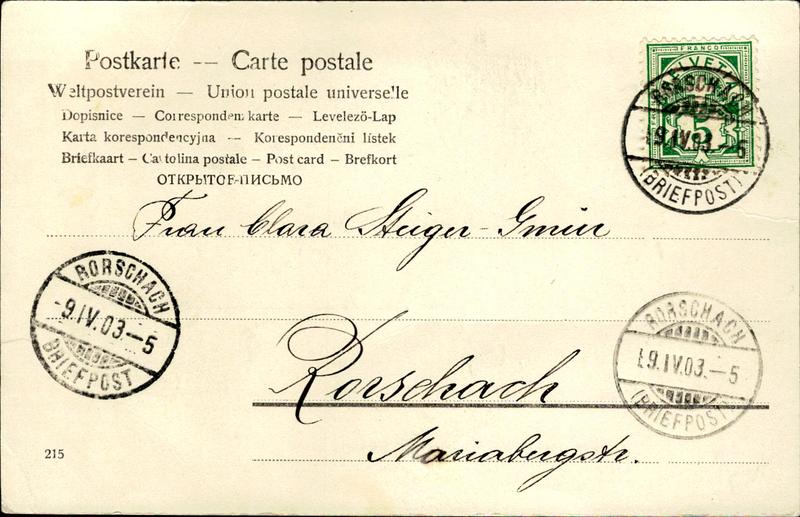 Postkarte — Carte postale
Weltpostverein — Union postale universelle
Dopisnice — Correspondenzkarte — Levelező-Lap
Karta korespondencyjna — Korespondenční lístek
Briefkaart – Cartolina postale – Post card – Brefkort
ОТКРЫТОЕ-ПИСЬМО
FRANCO
HELVETIA
5
RORSCHACH
-9.IV.03.-5
(BRIEFPOST)
Frau Clara Steiger-Gmür
RORSCHACH
-9.IV.03.-5
BRIEFPOST
RORSCHACH
9.IV.03.-5
(BRIEFPOST)
Rorschach
Mariabergstr.
215